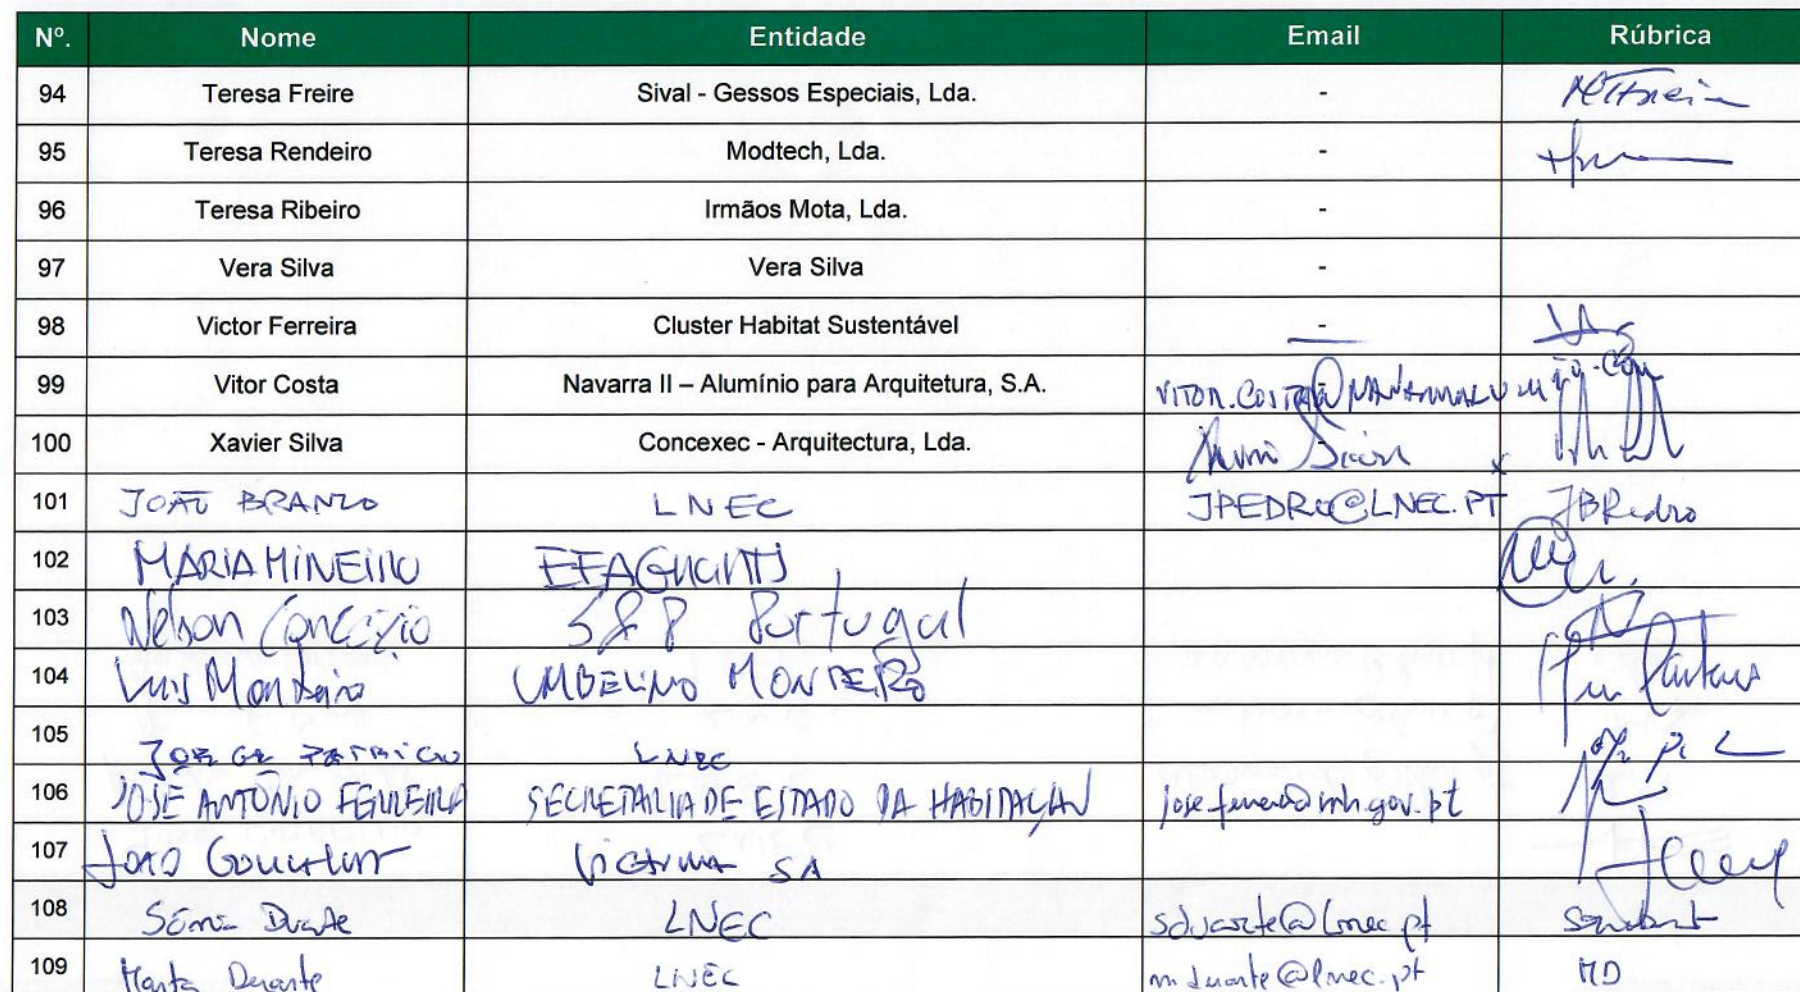 Nº. Nome Entidade Email Rúbrica
94 Teresa Freire Sival - Gessos Especiais, Lda. -
95 Teresa Rendeiro Modtech, Lda. -
96 Teresa Ribeiro Irmãos Mota, Lda. -
97 Vera Silva Vera Silva -
98 Victor Ferreira Cluster Habitat Sustentável -
99 Vitor Costa Navarra II – Alumínio para Arquitetura, S.A. -
100 Xavier Silva Concexec - Arquitectura, Lda. -
101 JOÃO BRANCO LNEC JPEDRO@LNEC.PT JBPedro
102 MARIA MINEIRO
103 Nelson Conceição S&P Portugal
104 Luis Monteiro UMBELINO MONTEIRO
105 JORGE PATRÍCIO LNEC
106 JOSÉ ANTÓNIO FERREIRA SECRETARIA DE ESTADO DA HABITAÇÃO
107 JOÃO SA
108 Sónia Duarte LNEC sduarte@lnec.pt
109 Marta Duarte LNEC mduarte@lnec.pt MD